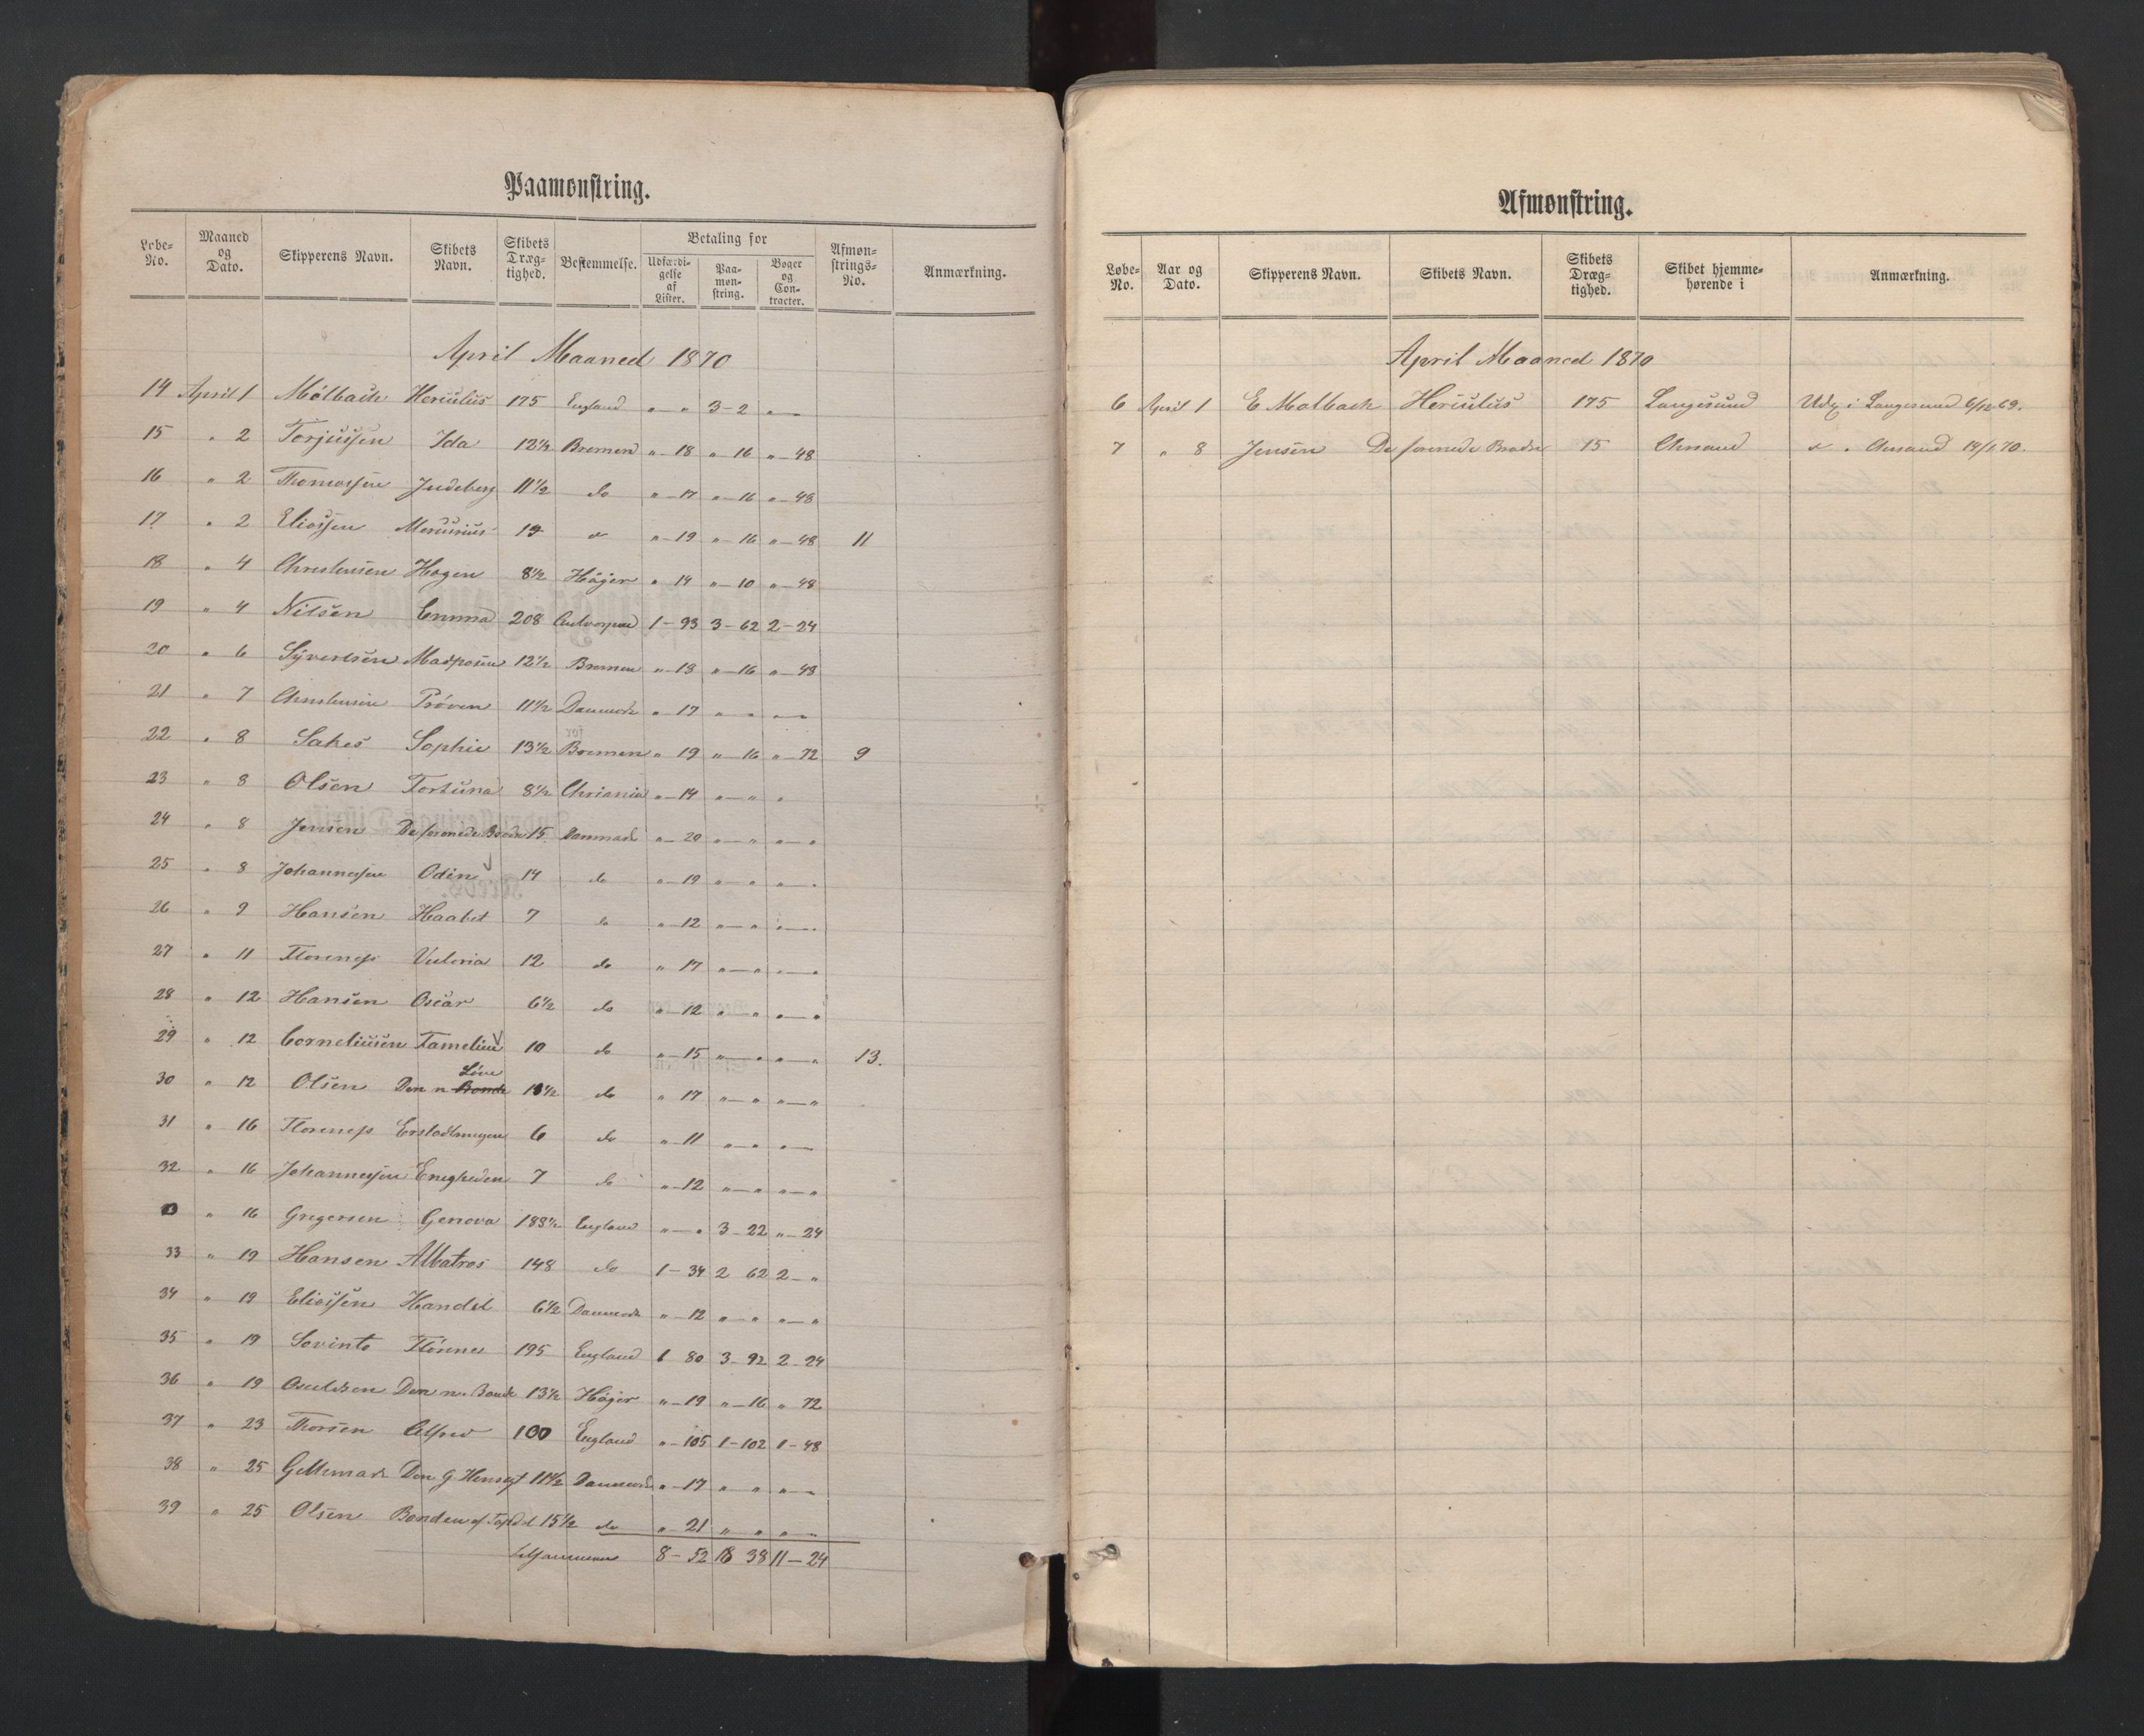 Paamønstring.
Løbe-No. Maaned og Dato. Skipperens Navn. Skibets Navn. Skibets Dræg-tighed. Bestemmelse. Betaling for Udfærdi-gelse af Lister. Paa-møn-string. Bøger og Con-tracter. Afmøn-strings-No. Anmærkning.
April Maaned 1870
14 April 1 Mølbach Herculus 175 England " " 3-2 " —
15 " 2 Torjussen Ida 12½ Bremen " - 18 " 16 " - 48
16 " 2 Thomassen Indeberg 11½ do " - 17 " - 16 " - 48
17 " 2 Eliassen Mercurius " - 19 " - 16 " - 48 11
18 " 4 Christensen Hogen 8½ Höjer " 14 " - 10 " - 48
19 " 4 Nilsen Emma 208 1 - 93 3 - 62 2 - 24
20 " 6 Syvertsen 12½ Bremen " - 18 " - 16 " - 48
21 " 7 Christensen Prøven 11½ Danmark " 17 " " " —
22 " 8 Sakes Sophie 13½ Bremen " 19 " - 16 " - 72 9
23 " 8 Olsen Fortuna 8½ Chriania " - 14 " - " "
24 " 8 Jensen De forenede Brødre 15 Danmark " - 20 " - " " - "
25 " 8 Johannesen Odin 14 do " - 19 " - " " - "
26 " 9 Hansen Haabet 7 do " - 12 " - " " - "
27 " 11 Florenes Victoria 12 do " 17 " - " " - "
28 " 12 Hansen Oscar 6½ do " - 12 " " " - "
29 " 12 Corneliusen Familien 10 do " - 15 " - " " - " 13.
30 " 12 Olsen Den n. Bonde Løve 10½ do " 17 " - " " - "
31 " 16 Florenes 6 do " - 11 " - " " —
32 " 16 Johannesen Enigheden 7 do " - 12 " - " " - "
" 16 Gregersen Genova 188½ England " - " 3 - 22 " - 24
33 " 19 Hansen Albatros 148 do 1 - 34 2 62 2 - "
34 " 19 Eliassen Handel 6½ Danmark " - 12 " " " - "
35 " 19 Sovinto 195 England 1 80 3 - 92 2 - 24
36 " 19 Osuldsen Den n. Bonde 13½ Höjer " - 19 " - 16 " 72
37 " 23 Thorsen Alfred 100 England " - 105 1 - 102 1 - 48
38 " 25 Den g. Hensigt 11½ Danmark " - 17 " " " —
39 " 25 Olsen Bonden af Topdal 15½ do " 21 " " " —
Tilsammen 8 - 52 18 38 11 - 24
Afmønstring.
Løbe-No. Aar og Dato. Skipperens Navn. Skibets Navn. Skibets Dræg-tighed. Skibet hjemme-hørende i Anmærkning.
April Maaned 1870
6 April 1 E Mølbach Herculus 175 Langesund Udg i Langesund 6/12 69.
7 " 8 Jensen De forenede Brødre 15 Chrsand Chrsand 19/1 70.